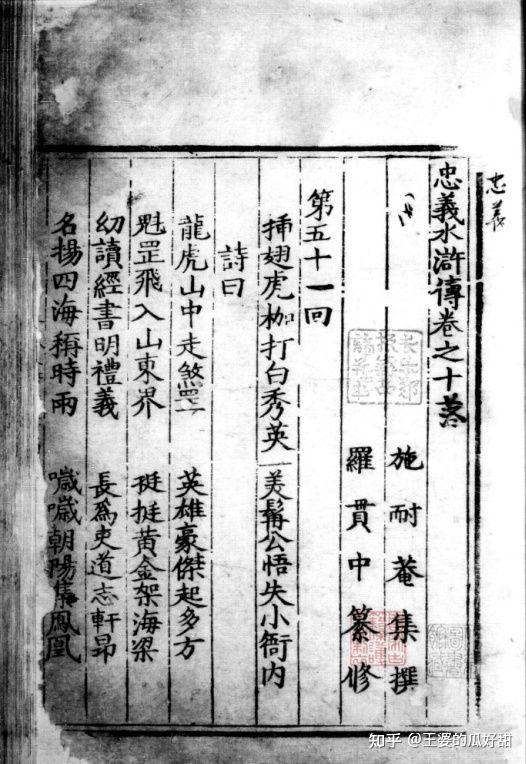 忠義
忠義水滸傳卷之十
施耐菴集撰
羅貫中纂修
第五十一回
插翅虎枷打白秀英 美髯公悞失小衙内
詩曰
龍虎山中走煞罡 英雄豪傑起多方
魁罡飛入山東界 挺挺黄金架海梁
幼讀經書明禮義 長爲吏道志軒昂
名揚四海稱時雨 噦噦朝陽集鳳凰
知乎 @王婆的瓜好甜